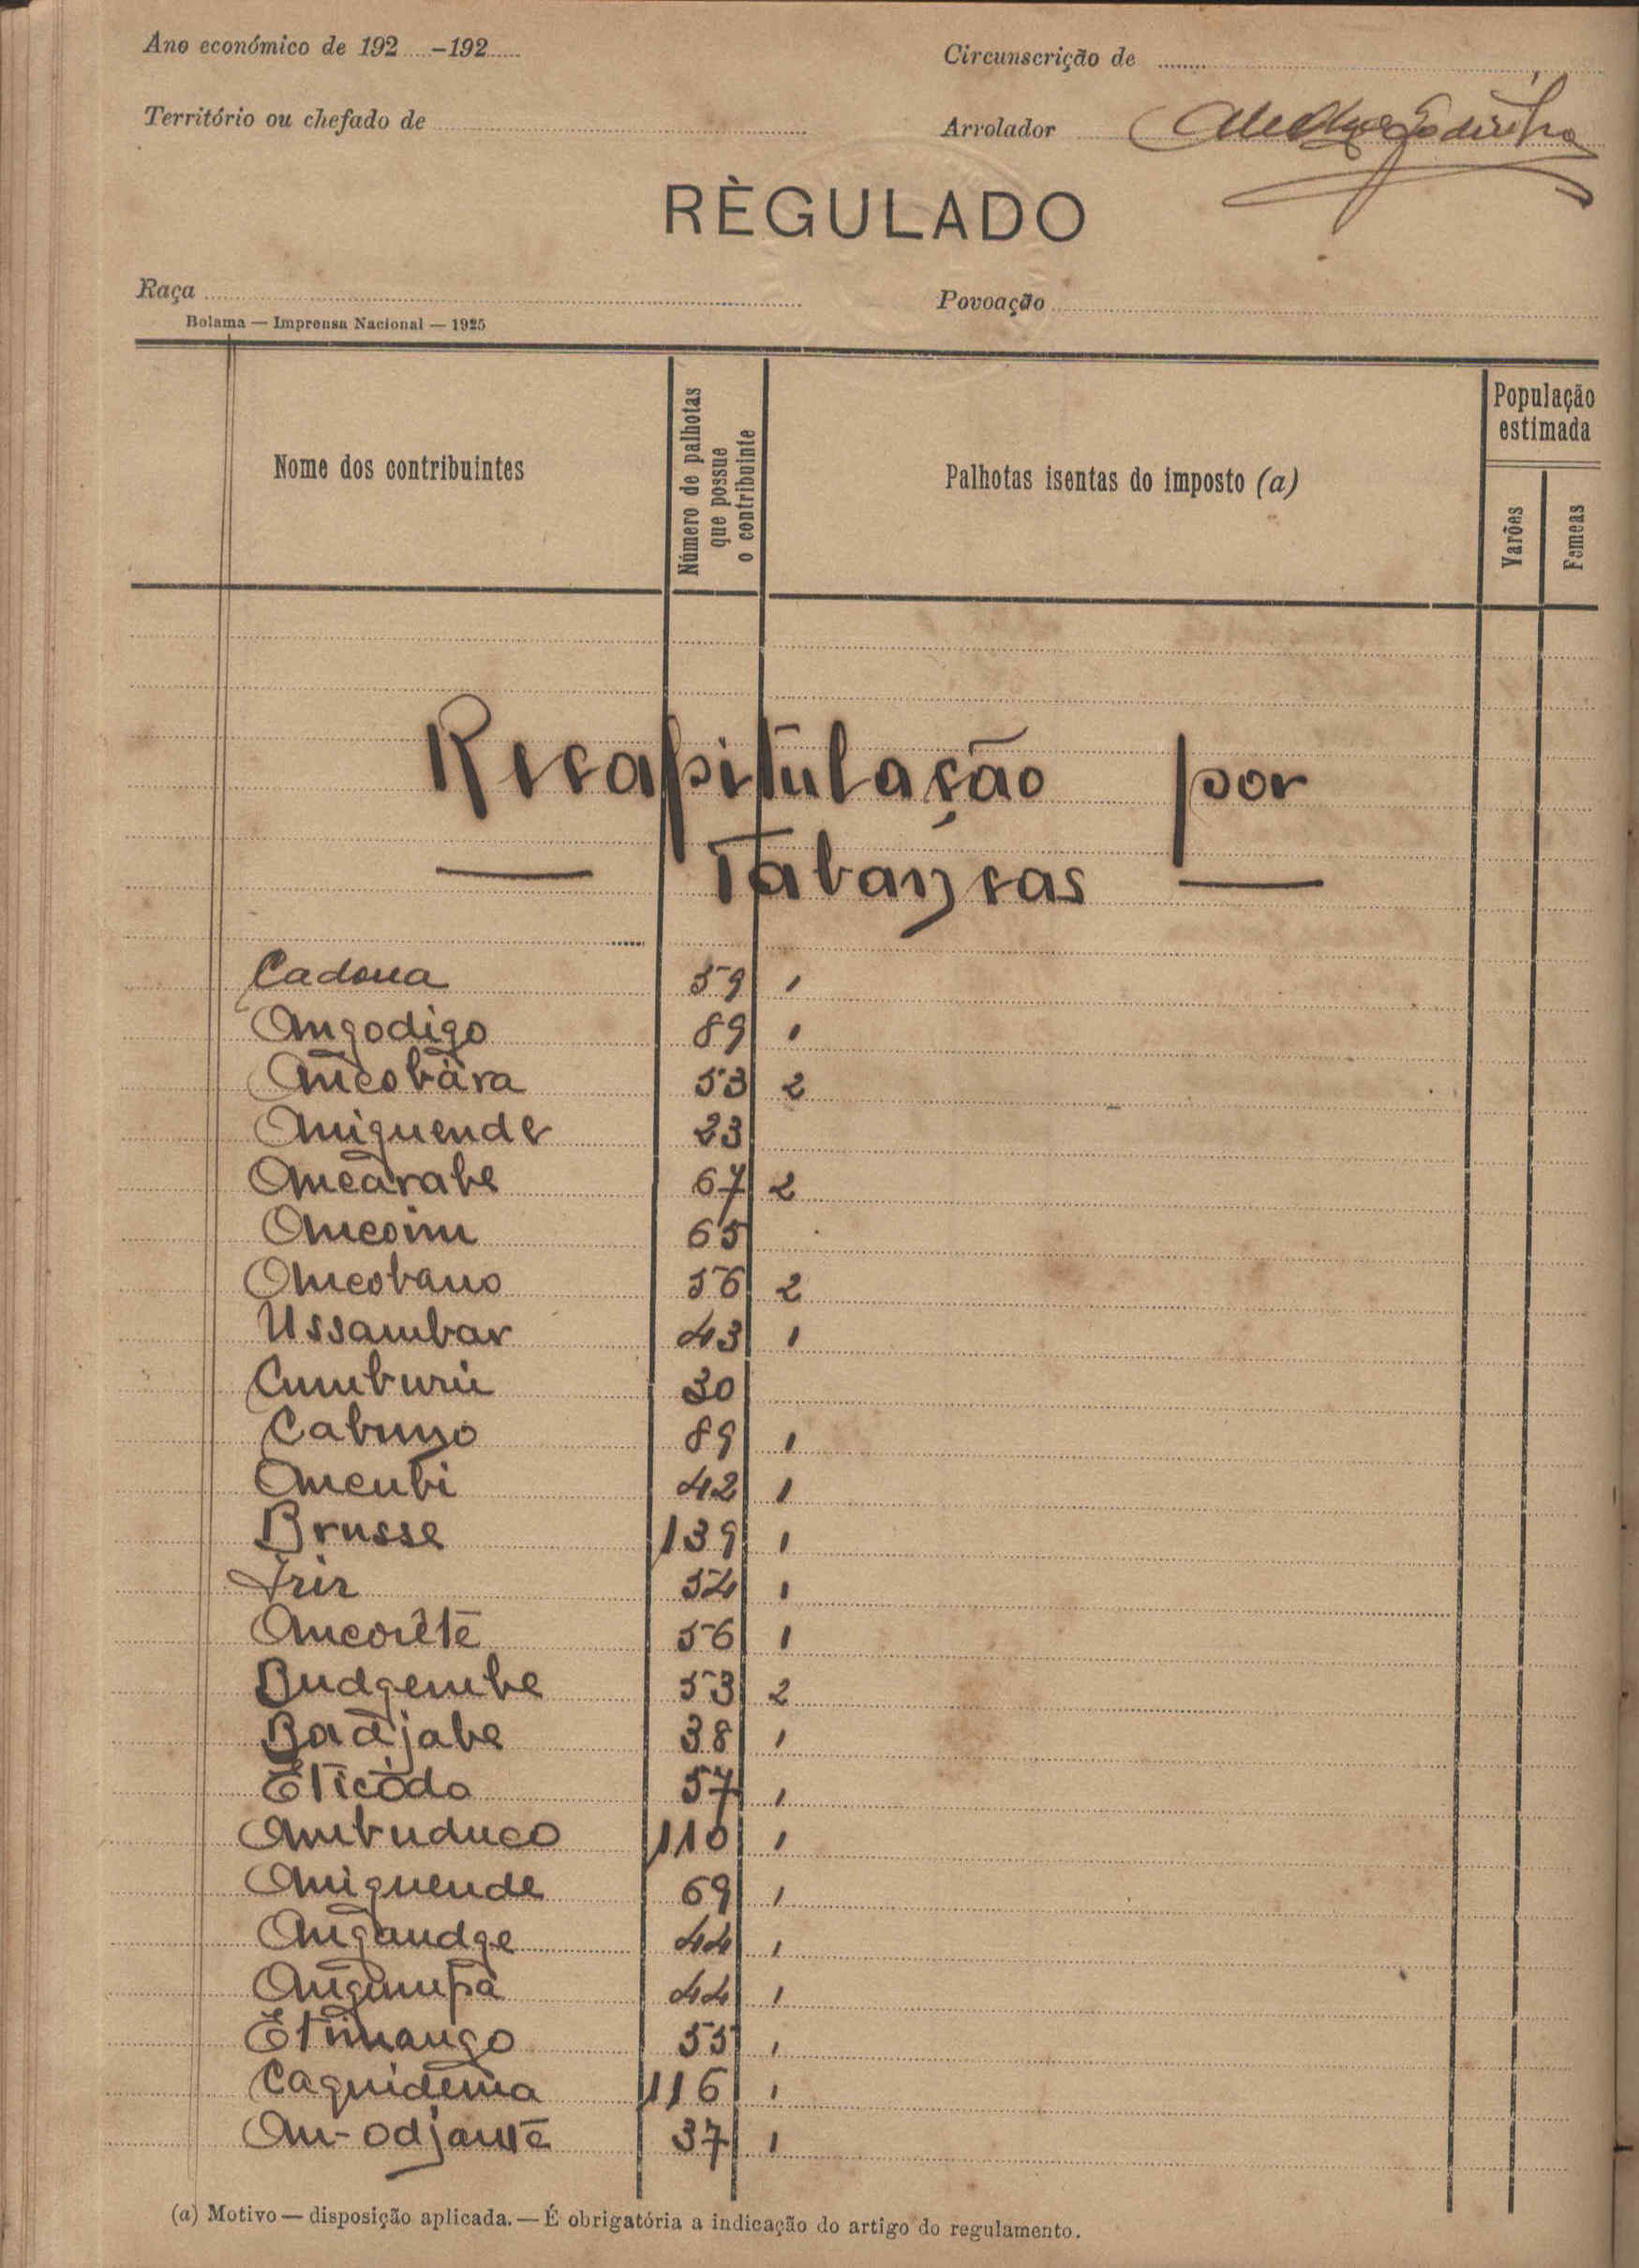 Ano económico de 192.....-192.....
Circunscrição de
Território ou chefado de
Arrolador
RÈGULADO
Raça
Povoação
Bolama — Imprensa Nacional — 1925
Nome dos contribuintes
Número de palhotas que possue o contribuinte
Palhotas isentas do imposto (a)
População estimada
Varões
Femeas
Recapitulação por
— Tabancas —
Cadona 59 1
Angodigo 89 1
Ancobára 53 2
Aniguende 23
Ancarabe 67 2
Ancoim 65
Ancobano 56 2
Ussambar 43 1
Cumburú 30
Cabuno 89 1
Ancubi 42 1
Brusse 139 1
54 1
Ancorête 56 1
Budgembe 53 2
38 1
Eticódo 57 1
Ambuduco 110 1
Aniguende 69 1
Angandge 44 1
Angumpa 44 1
Etimango 55 1
Caquidema 116 1
An-odjante 37 1
(a) Motivo — disposição aplicada. — É obrigatória a indicação do artigo do regulamento.